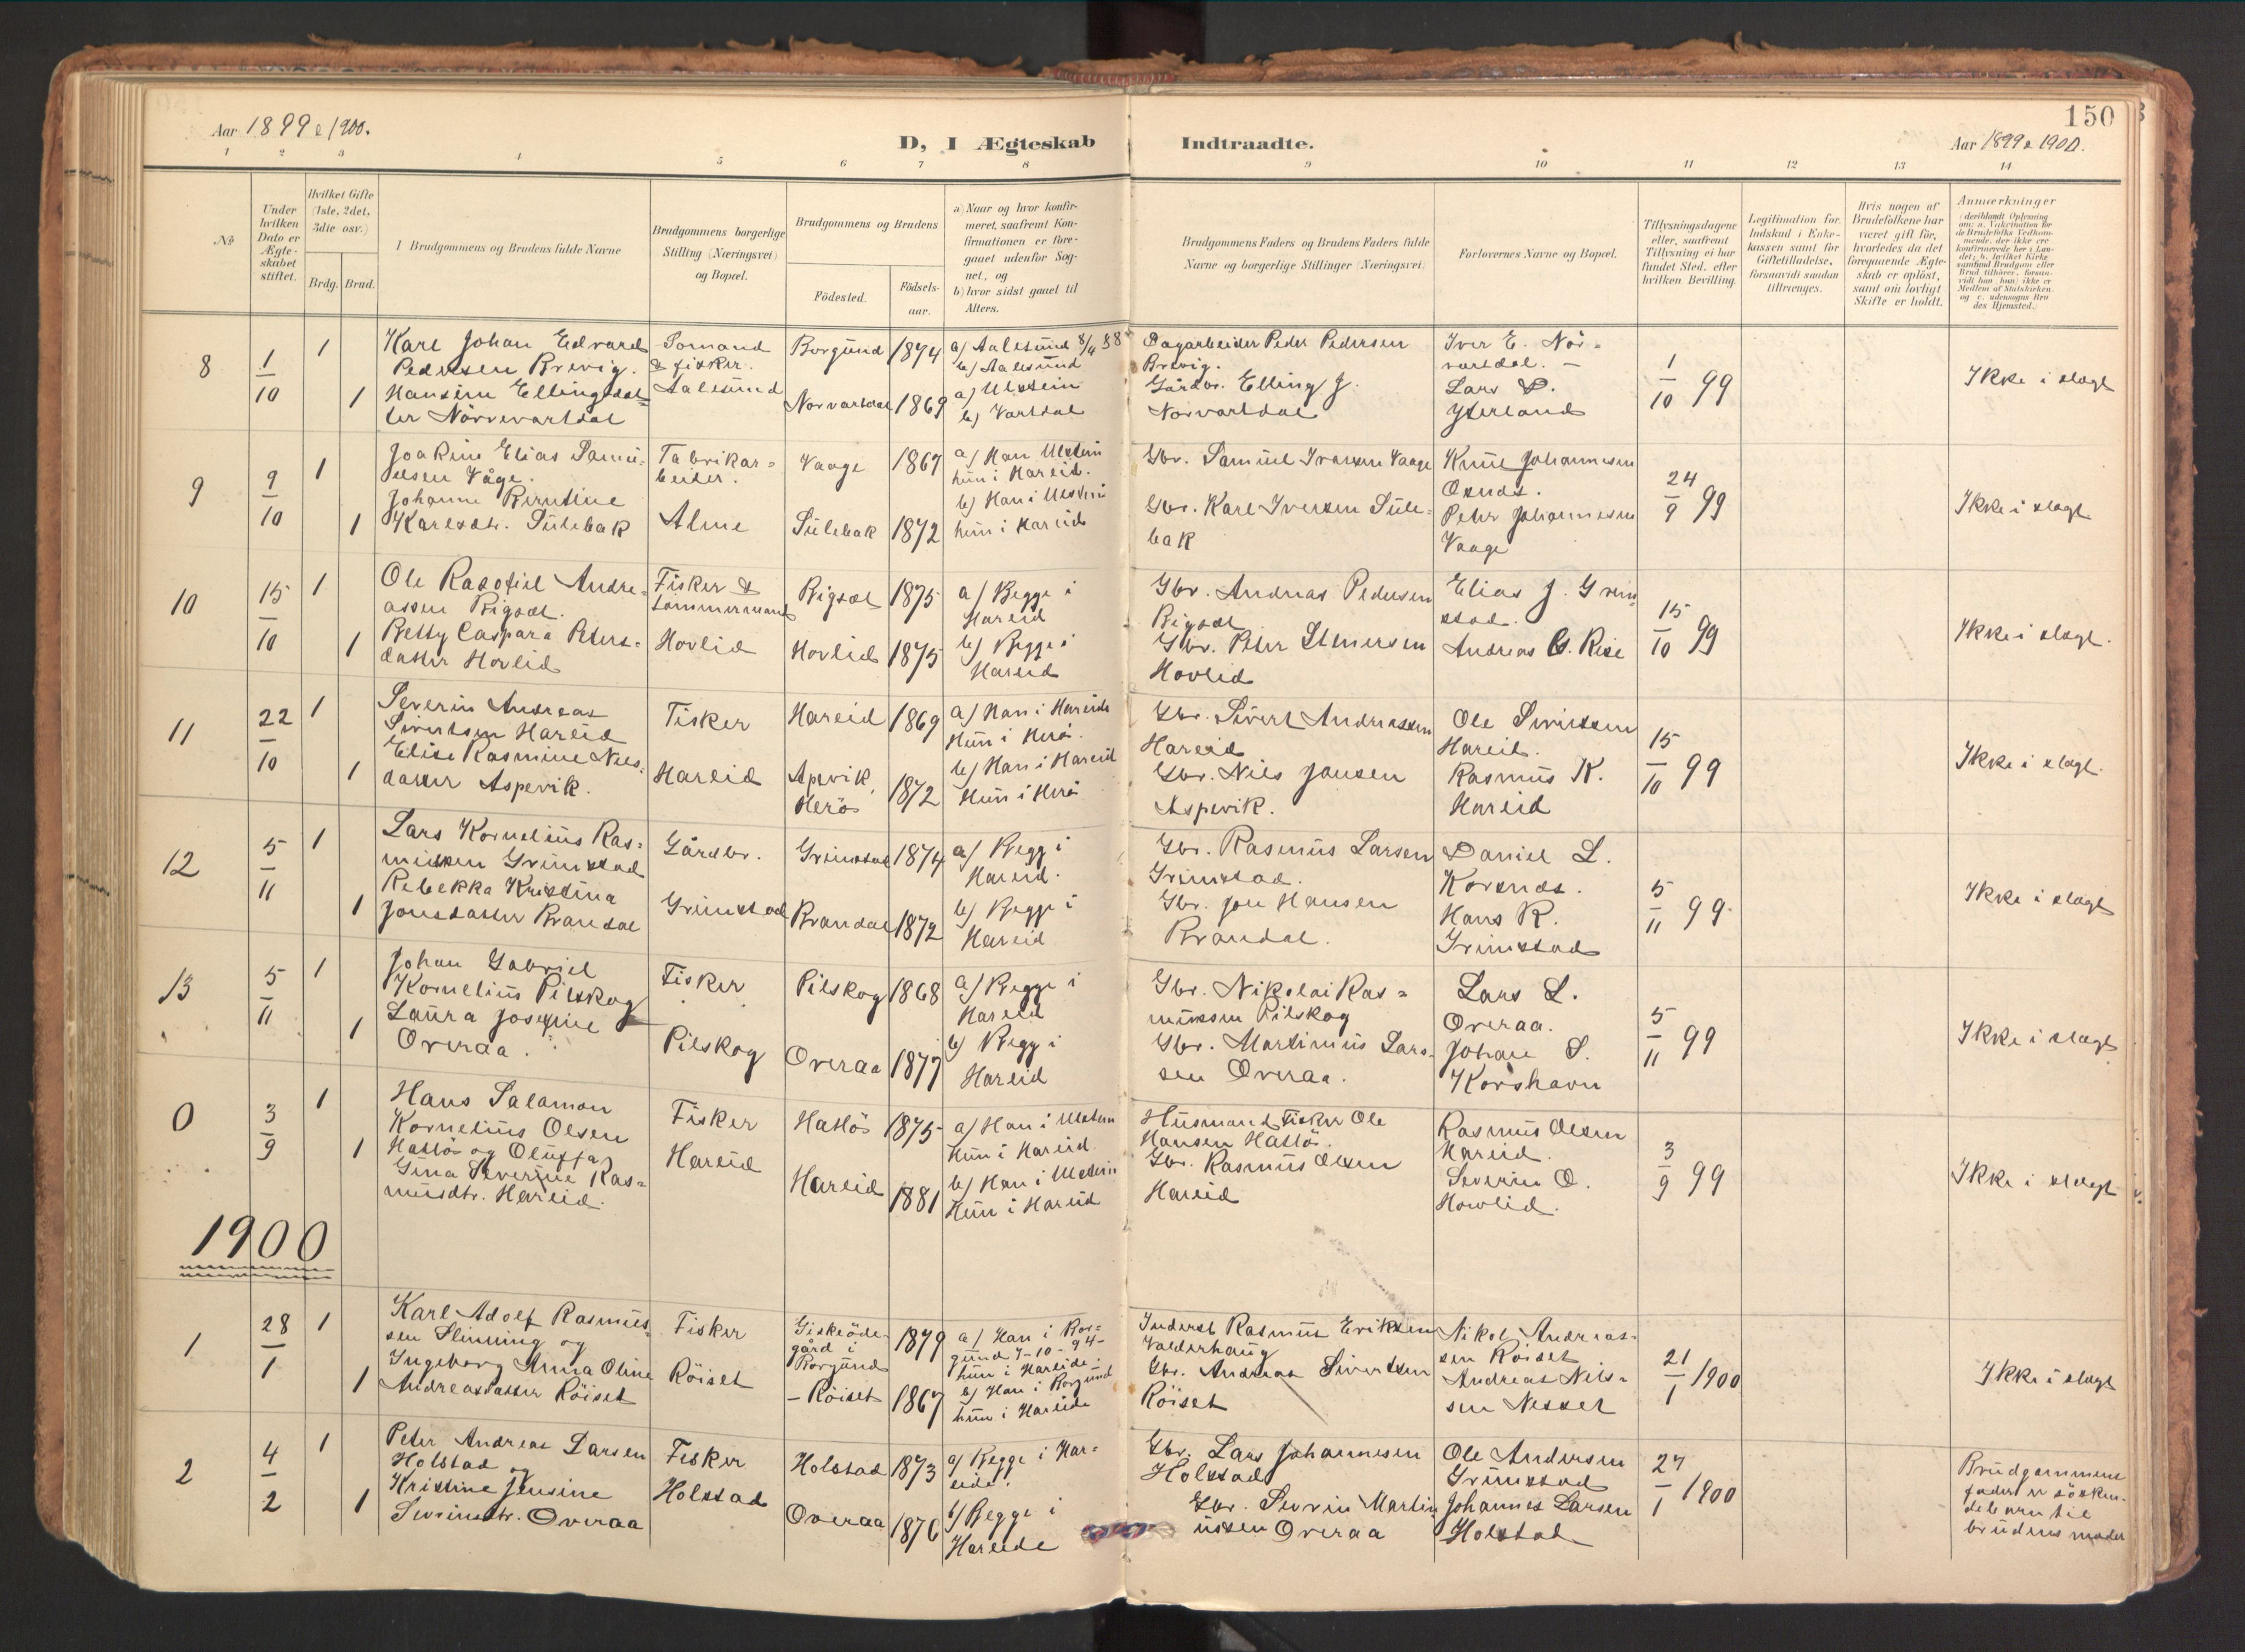 150
Aar 1899 & 1900.
D, I Ægteskab Indtraadte.
Aar 1899 & 1900.
1 2 3 4 5 6 7 8 9 10 11 12 13 14
No
Under hvilken Dato er Ægteskabet stiftet.
Hvilket Gifte (1ste, 2det, 3die osv.)
Brdg. Brud.
Brudgommens og Brudens fulde Navne
Brudgommens borgerlige Stilling (Næringsvei) og Bopæl.
Brudgommens og Brudens
Födested.
Födsels-aar.
a) Naar og hvor konfirmeret, saafremt Konfirmationen er foregaaet udenfor Sognet, og
b) hvor sidst gaaet til Alters.
Brudgommens Faders og Brudens Faders fulde Navne og borgerlige Stillinger (Næringsvei)
Forlovernes Navne og Bopæl.
Tillysningsdagene eller, saafremt Tillysning ei har fundet Sted, efter hvilken Bevilling.
Legitimation for Indskud i Enkekassen samt for Giftetilladelse, forsaavidt saadan tiltrænges.
Hvis nogen af Brudefolkene har været gift før, hvorledes da det foregaaende Ægteskab er oplöst, samt om lovligt Skifte er holdt.
Anmærkninger
8
1/10
1
1
Karl Johan Edvard
Pedersen Brevig.
Hansine Ellingsdat=
ter Nörrevartdal
& fisker.
Aalesund
Borgund 1874
Norvartdal 1869
a) Aalesund
b) Aalesund
a) Ulstein
b) Vartdal
Dagarbeider Peder Pedersen
Brevig.
Gårdbr. Elling J.
Norvartdal
Iver E. Nor=
vartdal. -
Lars P.
Yterland
1/10 99
Ikke i slagt
9
9/10
1
1
Joakim Elias Samu=
elsen Våge.
Johanne Berntine
Karlsdtr. Sulebak
Fabrikar=
beider.
Alme
Vaage 1867
Sulebak 1872
a) Han Ulstein
hun i Hareid.
b) Han i Ulstein
hun i Hareid
Gbr. Samuel Iversen Vaage
Gbr. Karl Iversen Sule=
bak
Knut Johannesen
Osnds.
Peter Johannesen
Vaage
24/9 99
Ikke i slagt
10
15/10
1
1
Ole Andre=
assen Rigsæt.
Betty Caspara Peters=
datter Hovlid
Fisker &
tommermand
Hovlid
Rigsæt 1875
Hovlid 1875
a) Begge i
Hareid
b) Begge i
Hareid
Gbr. Andreas Pedersen
Rigsæt
Gbr. Peter Elmersen
Hovlid
Elias J. Grim=
stad.
Andreas G. Rise
15/10 99
Ikke i slagt.
11
22/10
1
1
Severin Andreas
Sivertsen Hareid
Elise Rasmine Nils=
datter Aspevik.
Fisker
Hareid
Hareid 1869
Apevik,
Herö 1872
a) Han i Hareide
Hun i Herö.
b) Han i Hareid
Hun i Herö
Gbr. Sivert Andreassen
Hareid
Gbr. Nils Jansen
Aspevik.
Ole Sivertsen
Hareid.
Rasmus K.
Hareid
15/10 99
Ikke i slagt.
12
5/11
1
1
Lars Kornelius Ras=
mussen Grimstad
Rebekka Kristina
Jonsdatter Brandal
Gårdbr.
Grimstad
Grimstad 1874
Brandal 1872
a) Begge i
Hareid.
b) Begge i
Hareid
Gbr. Rasmus Larsen
Grimstad.
Gbr. Jon Hansen
Brandal.
Daniel L.
Korsnds.
Hans R.
Grimstad
5/11 99
Ikke i slagt
13
5/11
1
1
Johan Gabriel
Kornelius Pilskog
Laura Josefine
Overaa.
Fisker
Pilskog
Pilskog 1868
Overaa 1877
a) Begge i
Hareid
b) Begg i
Hareid
Gbr. Nikolai Ras=
mussen Pilskog
Gbr. Martinus Lars=
sen Overaa.
Lars L.
Overaa.
Johan S.
Korshavn
5/11 99
Ikke i slagt
0
3/9
1
1
Hans Salamon
Kornelius Olsen
Hatlös og Oluffa
Gina Severine Ras=
musdtr. Hareid.
Fisker
Hareid
Hatlös 1875
Hareid 1881
a) Han i Ulstein
Hun i Hareid.
b) Han i Ulstein
Hun i Hareid
Husmand Fisker Ole
Hansen Hatlös.
Gbr. Rasmus Olsen
Hareid
Rasmus Olsen
Hareid.
Severin O.
Hovlid.
3/9 99
Ikke i slagt
1900
1
28/1
1
1
Karl Adolf Rasmus=
sen Slinning og
Ingeborg Anna Oline
Andreasdatter Röiset
Fisker
Röiset
Giskeöde=
gård i
Borgund 1879
- Röiset 1867
a) Han i Bor=
gund 7-10-94-
hun i Hareide -
b) Han i Borgund
hun i Hareide
Inderst Rasmus Eriksen
Valderhaug
Gbr. Andreas Sivertsen
Röiset
Nikol. Andreas-
sen Röiset
Andreas Nils=
sen Nesset
21/1 1900
Ikke i slagt
2
4/2
1
1
Peter Andreas Larsen
Holstad og
Kristine Jensine
Severinsdtr. Overaa
Fisker
Holstad
Holstad 1873
Overaa 1876
a) Begge i Har=
eide.
b) Begge i
Hareide
Gbr. Lars Johannesen
Holstad
Gbr. Sevrin Martin
ussen Overaa
Ole Andersen
Grimstad
Johannes Larsen
Holstad
27/1 1900
Brudgommens
fader er sösken-
debarn til
brudens moder